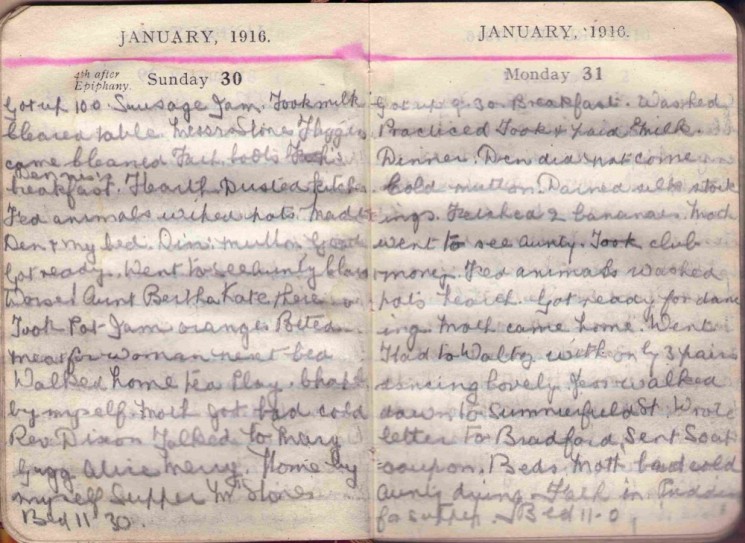 JANUARY, 1916.
4th after
Epiphany.
Sunday 30
Got up 10 0. Sausage Jam. Took milk
Cleared table. Messrs Stones
came Cleaned Fath boots
Dennis's
breakfast. Hearth Dusted kitchen
Fed animals wiped pots. Made
Den & my bed. Din. mutton
Got ready. Went to see Aunty Clara
Worse! Aunt Bertha Kate there
Took Pot Jam oranges Potted
meat for woman next bed
Walked home tea Play. Chapel
by myself. Moth got bad cold
Rev. Dixon Talked to Mary
Gugg Alice Merry. Home by
myself Supper Mr Stones
Bed 11-30.
JANUARY, 1916.
Monday 31
Got up 9.30 Breakfast. Washed
Practiced Took & paid milk.
Dinner. Den did not come
Cold mutton. Darned silk stock
ings. Fetched 2 bananas. Moth
went to see Aunty. Took club
money. Fed animals washed
pots hearth. Got ready for danc
ing. Moth came home. Went
Had to Waltz with only 3 pairs
dancing lovely. Jess walked
down to Summerfield St. Wrote
letter to Bradford, Sent Soap
coupon. Beds. Moth bad cold
Aunty dying. Fath in
for supper. Bed 11-0